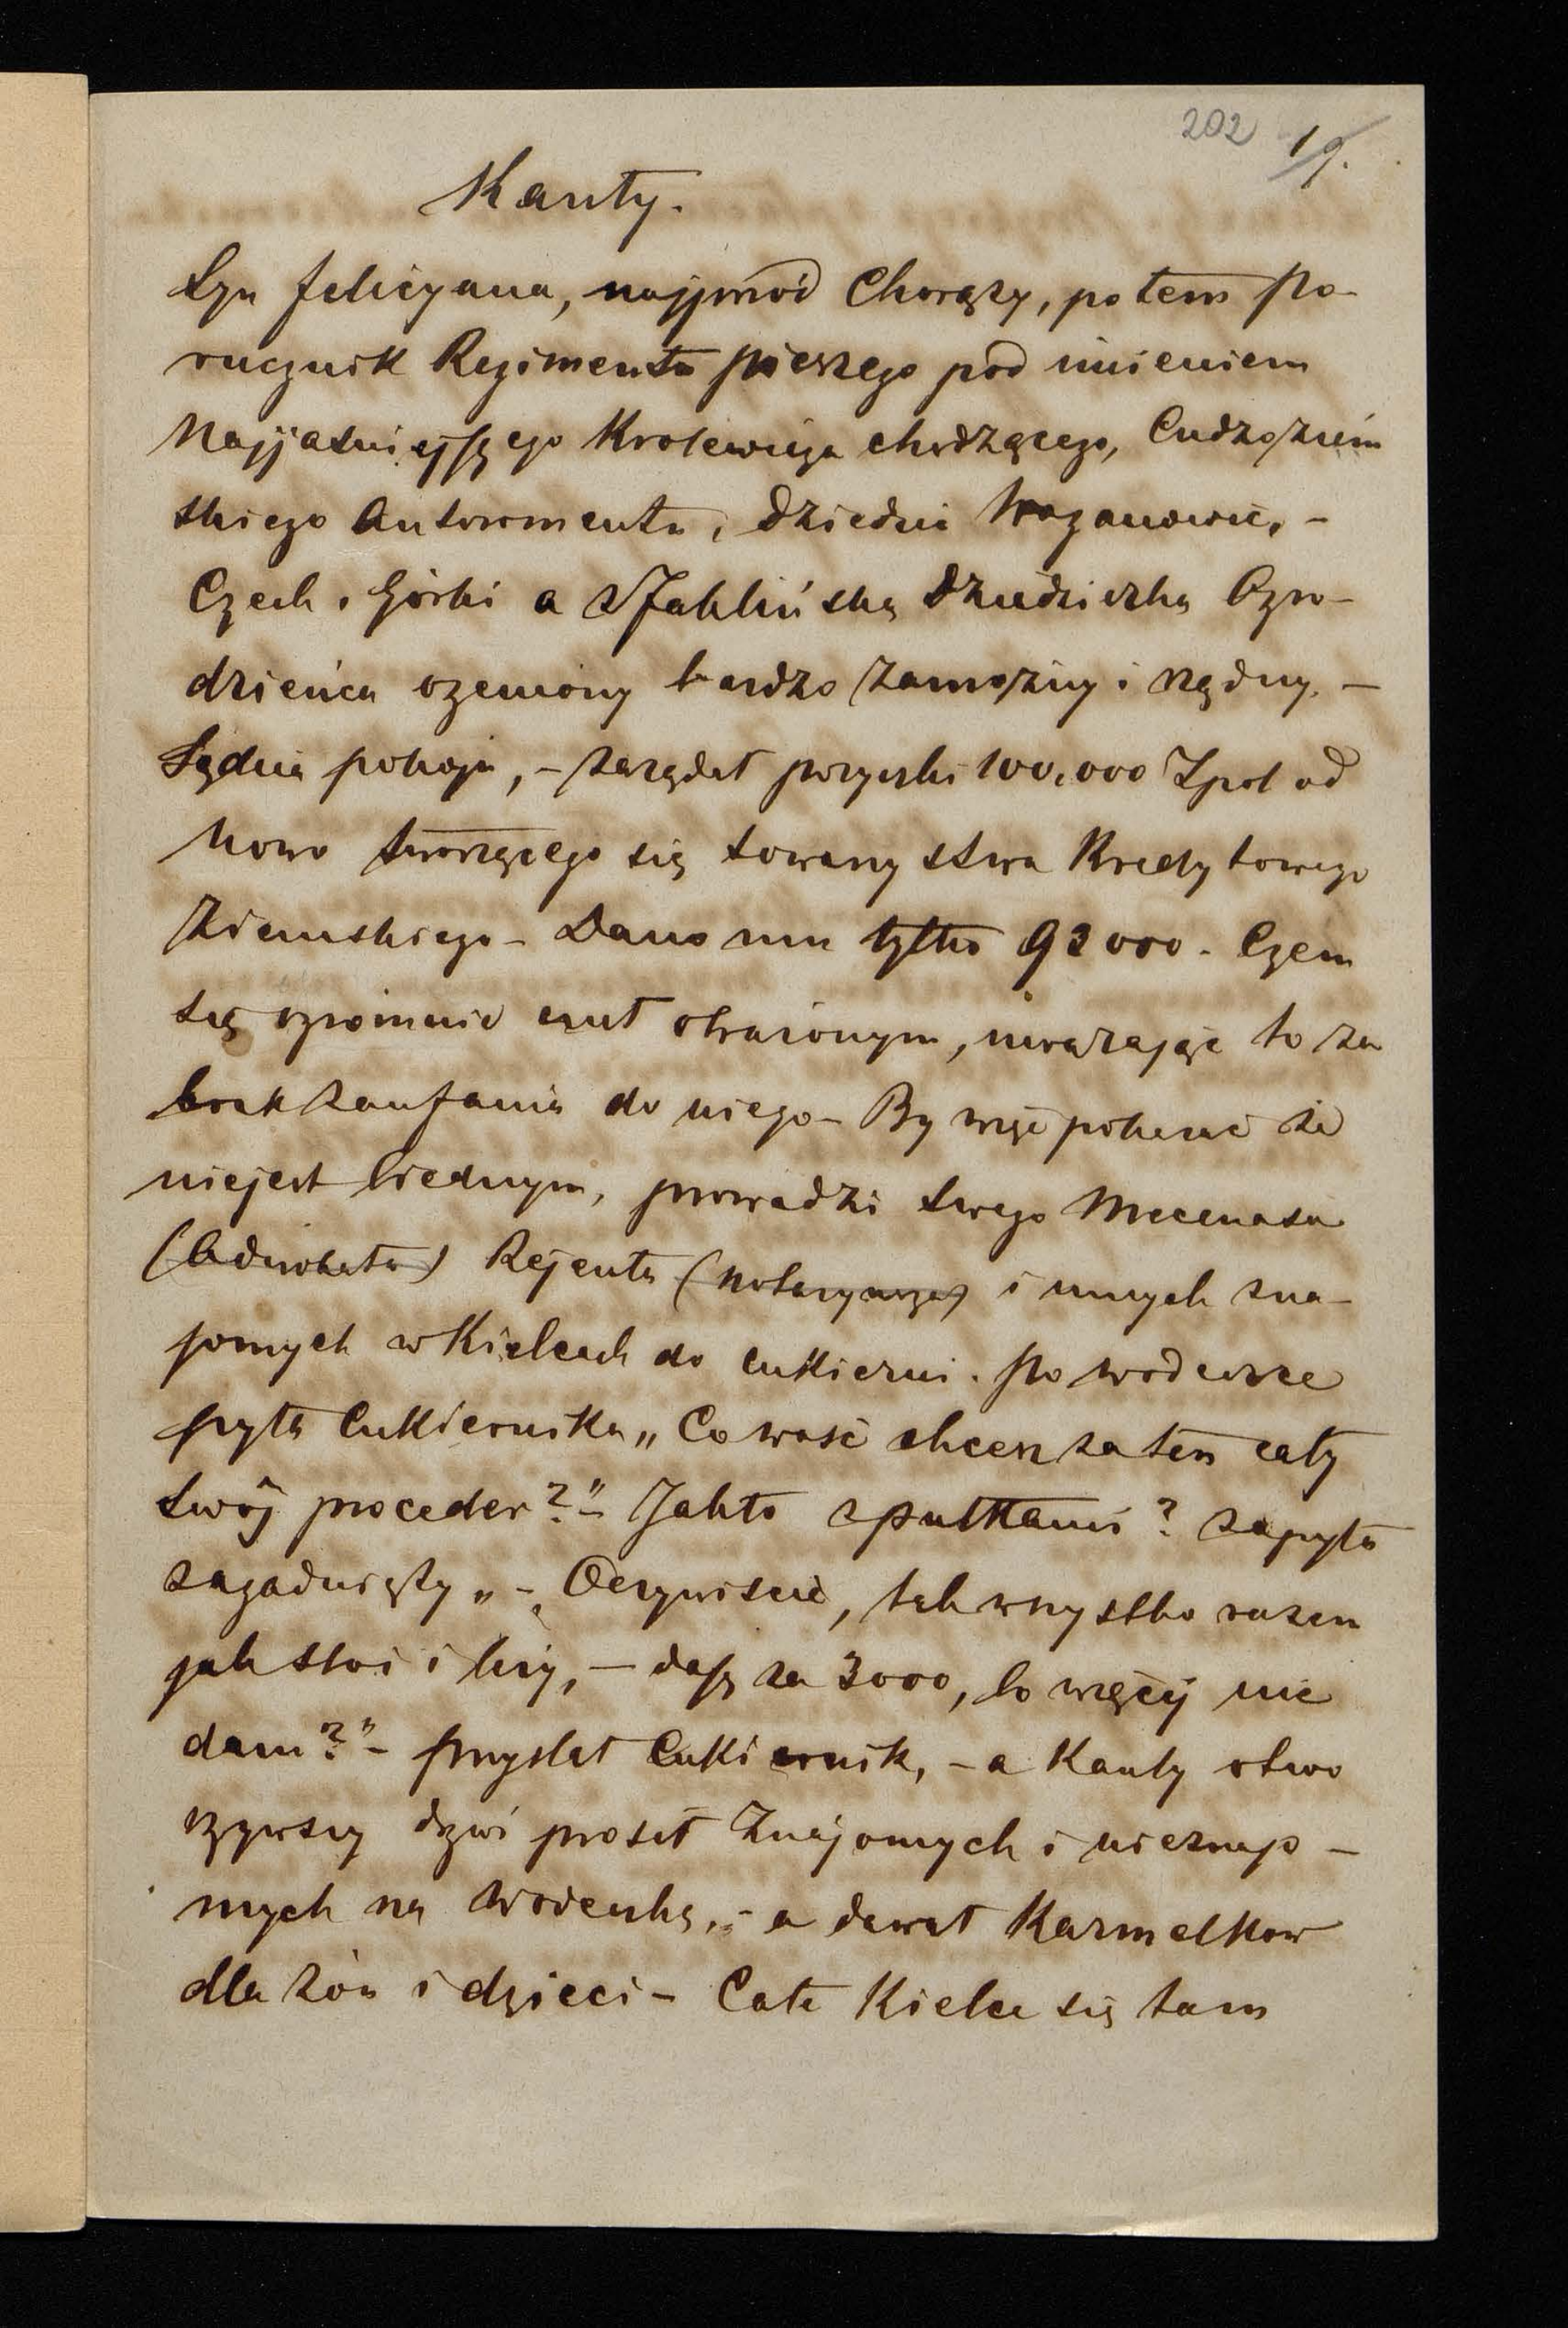 202 19.
Kanty.
Syn Felicyana, najprzód Chorąży, potem Po-
rucznik Regimentu pieszego pod imieniem
Najjaśniejszego Krolewicza chodzącego, Cudzoziem
skiego Autoramentu, dziedzic Woganowic, -
Czech, Górki a z Jaklińską dziedziczką Ogro-
dzieńca ożeniony bardzo zamożny i rządny. -
Sędzia pokoju, - zażądał pożyczki 100,000 Zpol od
nowo tworzącego się towarzystwa Kredytowego
Ziemskiego - Dano mu tylko 92000 - Czem
się ogromnie czuł obrażonym, uważając to za
brak zaufania do niego - By więc pokazać że
niejest biednym, prowadzi swego Mecenasa
(Adwokata) Rejenta (notaryusza) i innych zna-
jomych w Kielcach do cukierni. Po wódeczce
pyta Cukiernika „Co waść chcesz za ten cały
swój proceder?" - Jakto z pułkami? zapyta
zagadnięty „ - Oczywiście, tak wszystko razem
jak stoi i leży, - dasz za 3000, bo więcej nie
dam?" - przystał Cukiernik, - a Kanty otwo
rzywszy drzwi prosił Znajomych i nieznajo -
mych na wódeczkę, - a dawał Karmelkow
dla żon i dzieci - Całe Kielce się tam